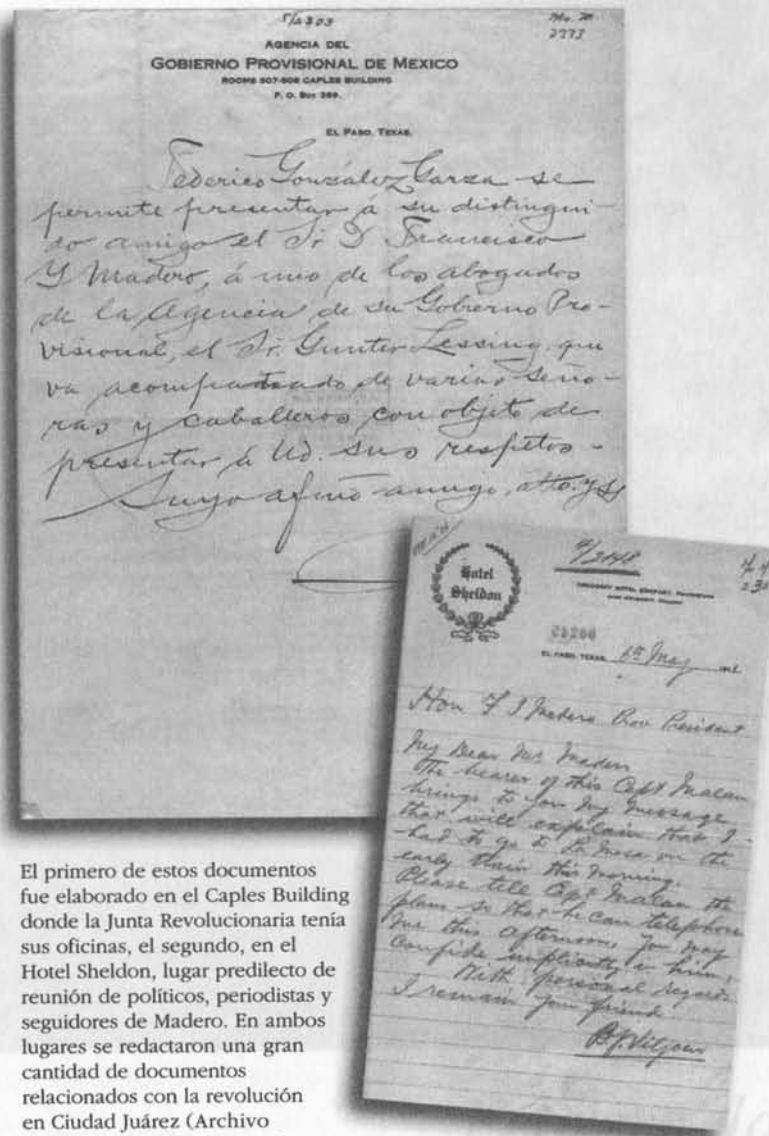 5/2303
2773
AGENCIA DEL
GOBIERNO PROVISIONAL DE MEXICO
ROOMS 507-508 CAPLES BUILDING
P. O. BOX
EL PASO, TEXAS.
Federico González Garza se
permite presentar á su distingui-
do amigo el Sr. D. Francisco
Y Madero, á uno de los abogados
de la Agencia de su Gobierno Pro-
visional, el Sr. Gunter Lessing, que
va acompañado de varias seño-
ras y caballeros con objeto de
presentar á Ud. sus respetos.-
Suyo afmo amigo, atto. y SS
Hotel
Sheldon
EL PASO, TEXAS, 6th May
Hon F I Madero Prov President
My Dear Mr Madero
The bearer of this Capt Malan
brings to you my message
that will explain that I
had to go to La Mesa on the
early train this morning.
Please tell Capt Malan the
plans so that he can telephone
me this afternoon, you may
confide implicitly in him.
With personal regards
I remain your friend
B. J. Viljoen
El primero de estos documentos
fue elaborado en el Caples Building
donde la Junta Revolucionaria tenía
sus oficinas, el segundo, en el
Hotel Sheldon, lugar predilecto de
reunión de políticos, periodistas y
seguidores de Madero. En ambos
lugares se redactaron una gran
cantidad de documentos
relacionados con la revolución
en Ciudad Juárez (Archivo